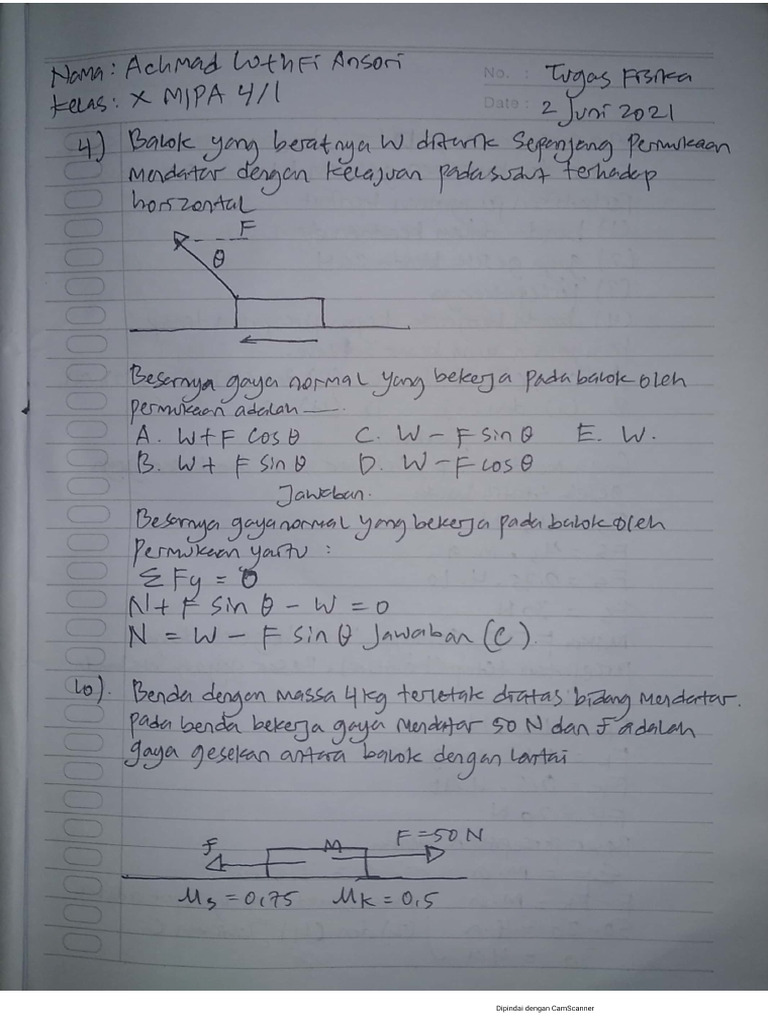 Nama : Achmad Luthfi Ansori
Kelas : X MIPA 4/1
No. : Tugas Fisika
Date : 2 Juni 2021
4) Balok yang beratnya W ditarik Sepanjang Permukaan
mendatar dengan kelajuan pada sudut terhadap
horizontal
F
θ
Besarnya gaya normal yang bekerja pada balok oleh
permukaan adalah —.
A. W+F cos θ C. W - F sin θ E. W.
B. W+ F sin θ D. W - F cos θ
Jawaban.
Besarnya gaya normal yang bekerja pada balok oleh
Permukaan yaitu :
Σ Fy = 0
N + F sin θ - W = 0
N = W - F sin θ Jawaban (C).
10). Benda dengan massa 4 kg terletak diatas bidang mendatar.
pada benda bekerja gaya mendatar 50 N dan f adalah
gaya gesekan antara balok dengan lantai
f M F = 50 N
μs = 0,75 μk = 0,5
Dipindai dengan CamScanner